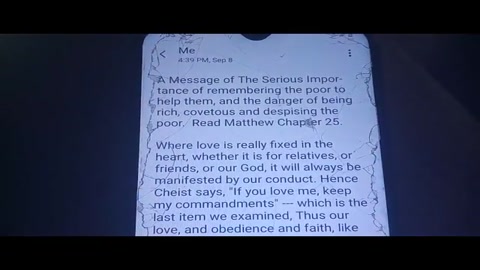 Me
4:39 PM, Sep 8
A Message of The Serious Impor-
tance of remembering the poor to
help them, and the danger of being
rich, covetous and despising the
poor. Read Matthew Chapter 25.
Where love is really fixed in the
heart, whether it is for relatives, or
friends, or our God, it will always be
manifested by our conduct. Hence
Cheist says, "If you love me, keep
my commandments" --- which is the
last item we examined, Thus our
love, and obedience and faith, like